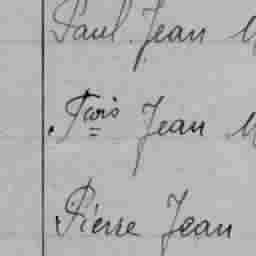 Paul Jean M
Fçois Jean M
Pierre Jean